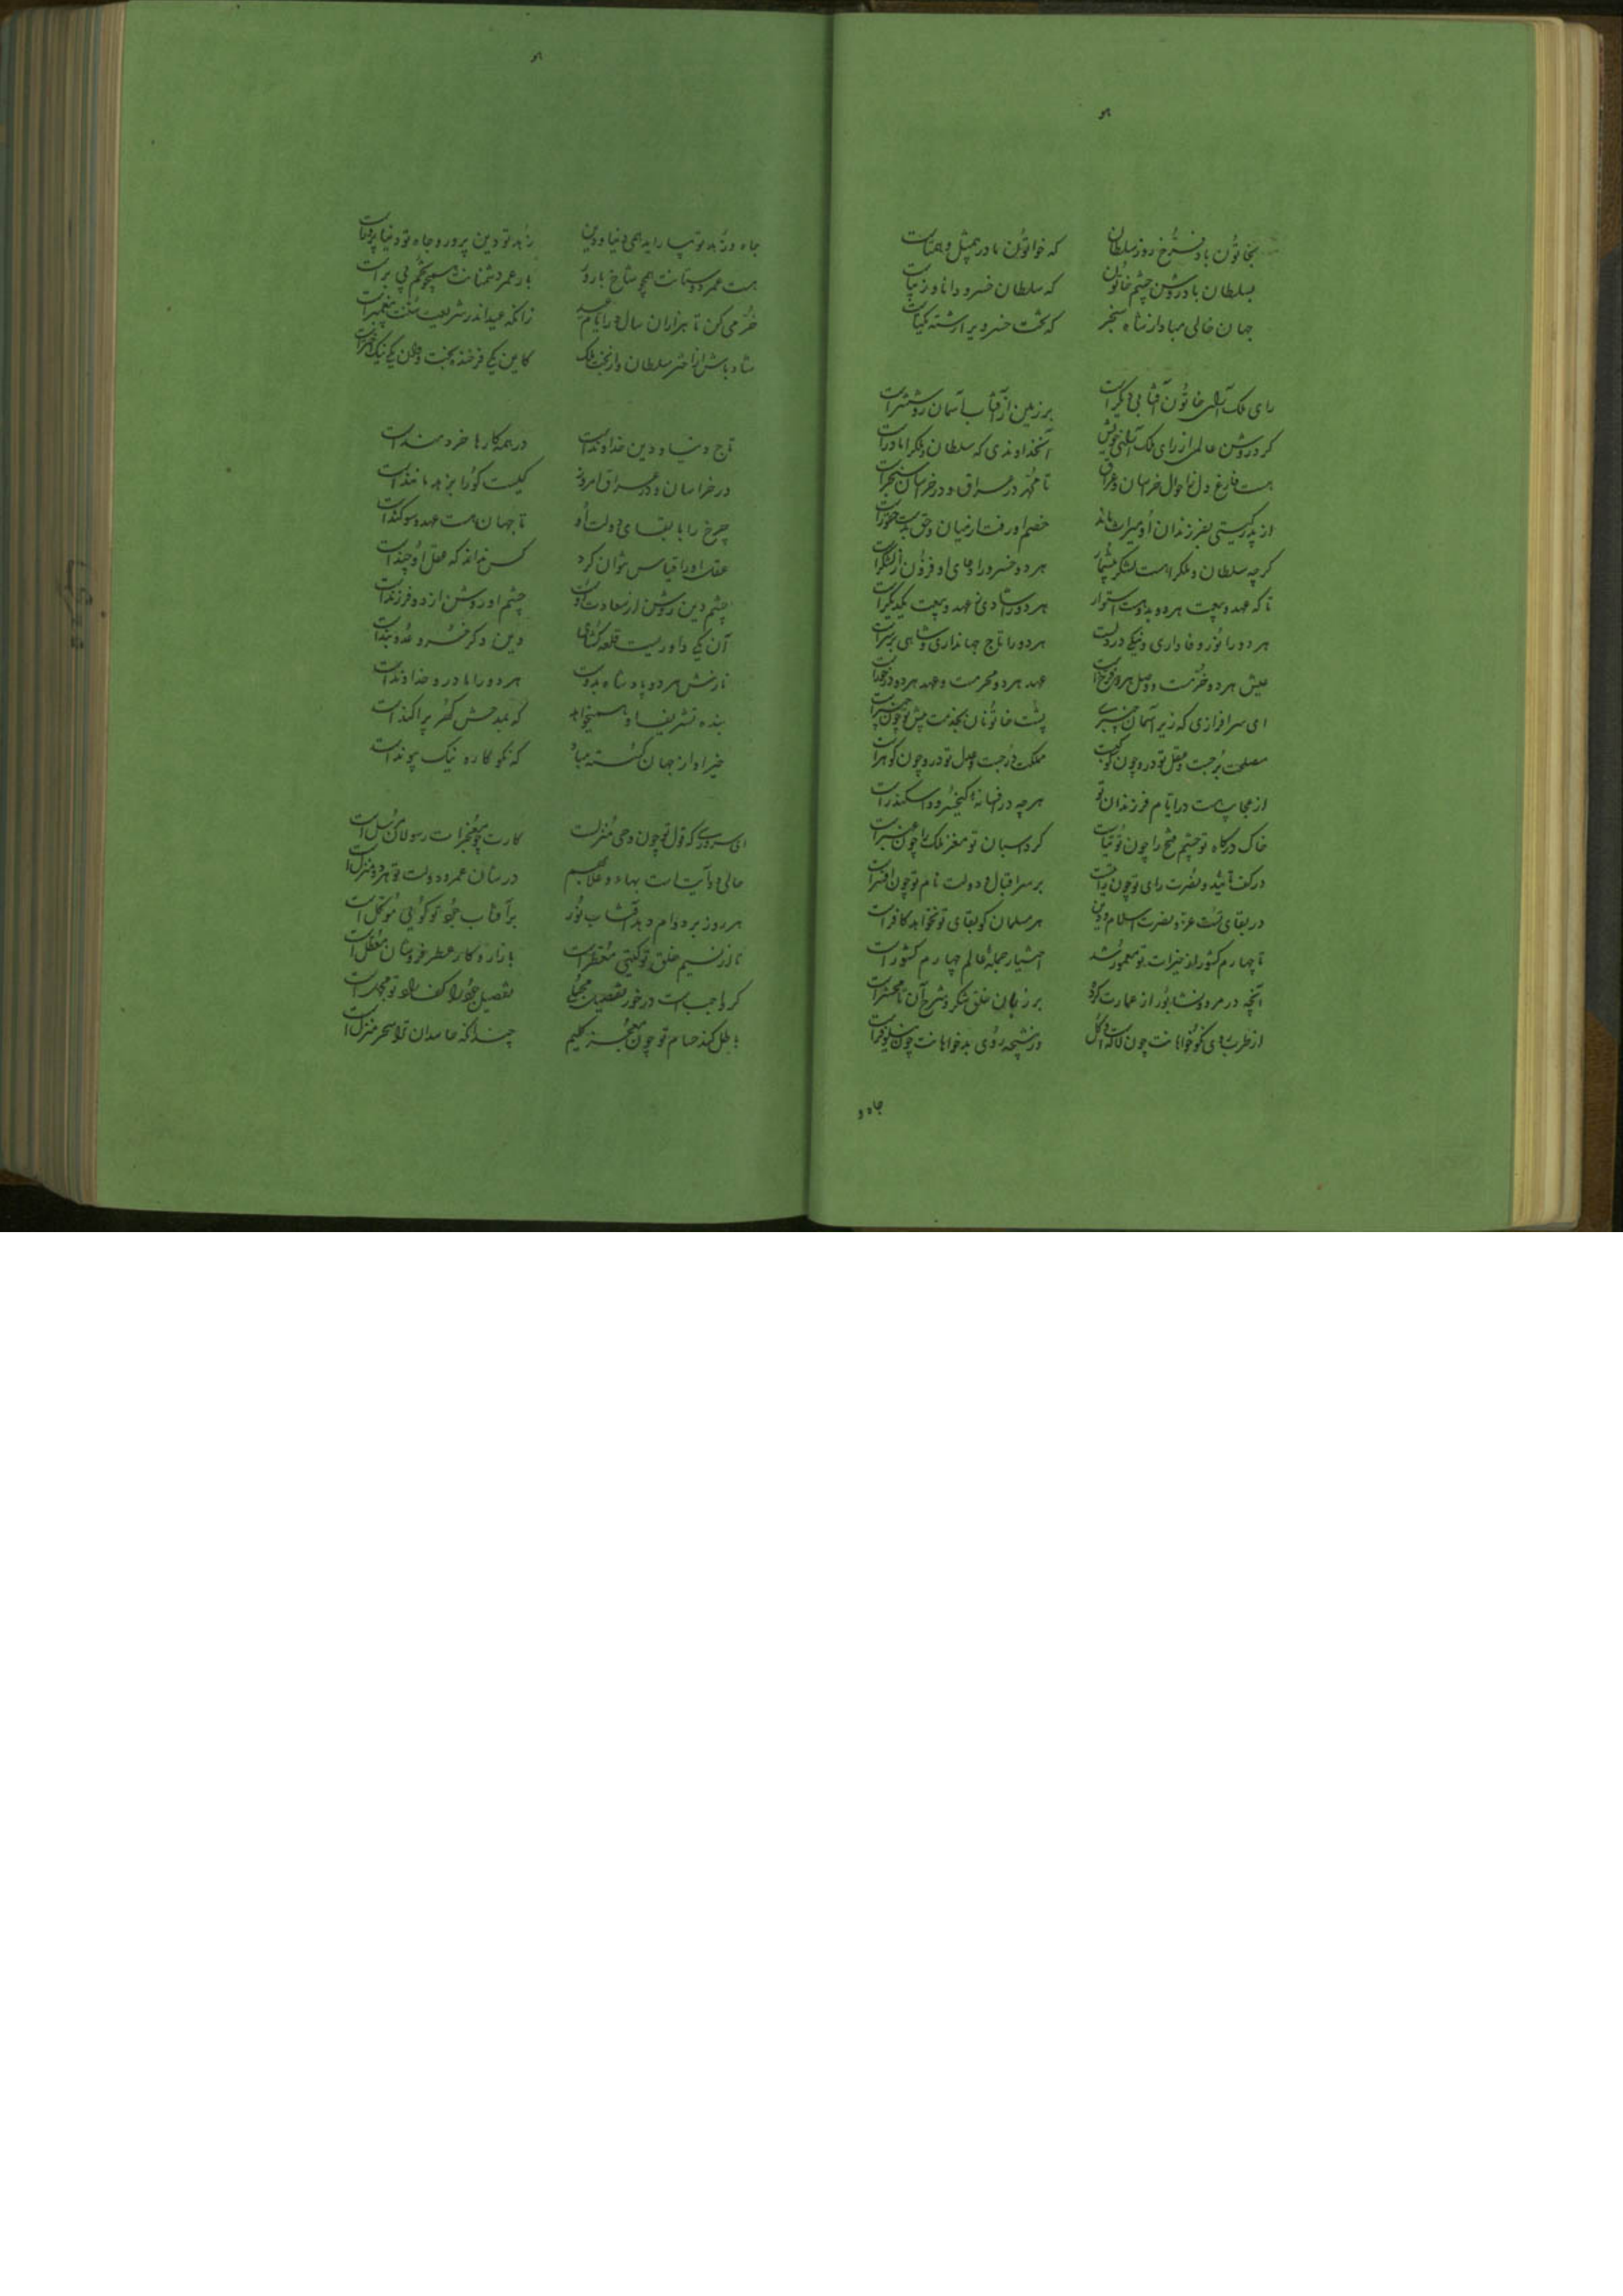 بخاتون باد فرخ روز سلطان که خواتون نادر همپثل و همتاست
بسلطان باد روشن چشم خاتون که سلطان خسرو دانا و زیباست
جهان خالی مباد از شاه سنجر که تخت خسروی آراسته
رای ملک آرای خاتون آفتابی دیگرست بر زمین از آفتاب آسمان روشنترست
کرد روشن عالمی از رای ملک آرای خویش آنخداوندی که سلطان و ملک را مادرست
هست فارغ دل ز احوال خراسان و عراق تا محمد در عراق و در خراسان سنجرست
از پدر گیتی بفرزندان او میراث ماند خصم او رفت از میان و حق بدست
گرچه سلطان و ملک را هست لشکر بیشمار هر دو خسرو را دعای او فزون از لشکرست
تا که عهد و بیعت هر دو بدوست استوار هر دو را شادی ز عهد و بیعت یکدیگرست
هر دو را نور وفاداری و نیکی در دلست هر دو را تاج جهانداری و شاهی بر سرست
عیش هر دو خرمست و وصل هر دو عهد هر دو محرمست و عهد هر دو
ای سرافرازی که زیر آسمان چنبری پشت خاتونان بخدمت پیش تو چون چنبرست
مصلحت برجست و عقل تو درو چون کوکبست مملکت درجست و عدل تو درو چون گوهرست
از عجایب هست در ایام فرزندان تو هرچه در افسانه کیخسرو و اسکندرست
خاک درگاه تو چشم فتح را چون توتیاست گرد اسبان تو مغز ملک را چون عنبرست
در کف امید و نصرت رای تو چون رایتست بر سر اقبال و دولت نام تو چون افسرست
در بقای تست عز و نصرت اسلام و دین هر مسلمان کو بقای تو نخواهد کافرست
تا چهارم کشور از خیرات تو معمور شد اختیار جمله عالم چهارم کشورست
آنچه در مرو و نشابور از عمارت کرد بر زبان خلق شکر و شرح آن تا محشرست
از طرب روی نکو خواهانت چون لاله است و گل وز روی بدخواهانت چون نیلوفرست
جاه و
جاه و زهد تو بیاراید همی دنیا و دین زهد تو دین پرور و جاه تو دنیا پرورست
هست عمر دوستانت همچو شاخ بارور بار عمر دشمنانت همچو تخم بی برست
خرمی کن تا هزاران سال در ایام عید زانکه عید اندر شریعت سنت پیغمبرست
شاد باش از اختر سلطان و از بخت ملک کاین یکی فرخنده بخت و آن یکی نیک اخترست
تاج دنیا و دین خداوندست در همه کارها خردمندست
در خراسان و در عراق امروز کیست کو را بزهد مانندست
چرخ را با بقای دولت او تا جهان هست عهد و سوگندست
عقل او را قیاس نتوان کرد کس نداند که عقل او چندست
چشم دین روشن از سعادت اوست چشم او روشن از دو فرزندست
آن یکی داوریست قلعه گشای وین دگر خسرو عدو بندست
نازش هر دو پادشاه بدوست هر دو را مادر و خداوندست
بنده تشریف او همیخواهد که بمدحش گهر پراکندست
خیر او از جهان گسسته مباد که نکو کار و نیک پیوندست
ای سروری که قول تو چون وحی منزلست کارت چو معجزات رسولان مرسلست
عالی دو آیت است بهاء و علا بهم در شأن عمر و دولت تو هر دو منزلست
هر روز بر دوام دهد آفتاب نور بر آفتاب جود تو گویی موکلست
تا از نسیم خلق تو گیتی معطرست بازار و کار عطر فروشان معطلست
گر واجب است در خور تفصیل مجملی تفصیل جود را کف راد تو مجملست
باطل کند حسام تو چون معجز کلیم چندانکه حاسدان ترا سحر